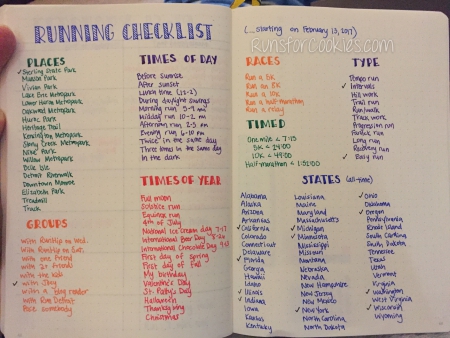 RUNNING CHECKLIST
PLACES
✓ Sterling State Park
Munson Park
Vivian Park
Lake Erie Metropark
Lower Huron Metropark
Oakwood Metropark
Huroc Park
Heritage Trail
Kensington Metropark
Stony Creek Metropark
Nike Park
Willow Metropark
Belle Isle
Detroit Riverwalk
Downtown Monroe
Elizabeth Park
Treadmill
Track
GROUPS
with RunUp on Wed.
with RunUp on Sat.
with one friend
with 2+ friends
with the kids
✓ with Jerry
with a "blog reader"
with Run Detroit
Pace somebody
TIMES OF DAY
Before sunrise
After sunset
Lunch time (12-2)
During daylight savings
Morning run 5-9
Midday run 10-2
Afternoon run 2-5
Evening run 6-10 pm
Twice in the same day
Three times in the same day
In the dark
TIMES OF YEAR
Full moon
Solstice run
Equinox run
4th of July
National Ice cream day 7-17
International Beer Day
International Chocolate Day
First day of spring
First day of fall
My birthday
Valentine's Day
St. Patty's Day
Halloween
Thanksgiving
Christmas
(...starting on February 13, 2017)
RunsforCookies.com
RACES
Run a 5K
Run an 8K
Run a 10K
Run a half-marathon
Run a relay
TIMED
One mile < 7:15
5K < 24:00
10K < 49:00
Half-marathon <
TYPE
Tempo run
✓ Intervals
Hill work
Trail run
Run/walk
Track work
Progression run
Fartlek run
Long run
Recovery run
✓ Easy run
STATES (all-time)
Alabama
Alaska
Arizona
Arkansas
✓ California
Colorado
Connecticut
Delaware
✓ Florida
Georgia
Hawaii
Idaho
✓ Illinois
✓ Indiana
Iowa
Kansas
Kentucky
Louisiana
Maine
Maryland
Massachusetts
✓ Michigan
✓ Minnesota
Mississippi
Missouri
Montana
Nebraska
Nevada
New Hampshire
New Jersey
New Mexico
✓ New York
North Carolina
North Dakota
✓ Ohio
Oklahoma
✓ Oregon
Pennsylvania
Rhode Island
South Carolina
South Dakota
Tennessee
Texas
Utah
Vermont
Virginia
✓ Washington
West Virginia
✓ Wisconsin
Wyoming